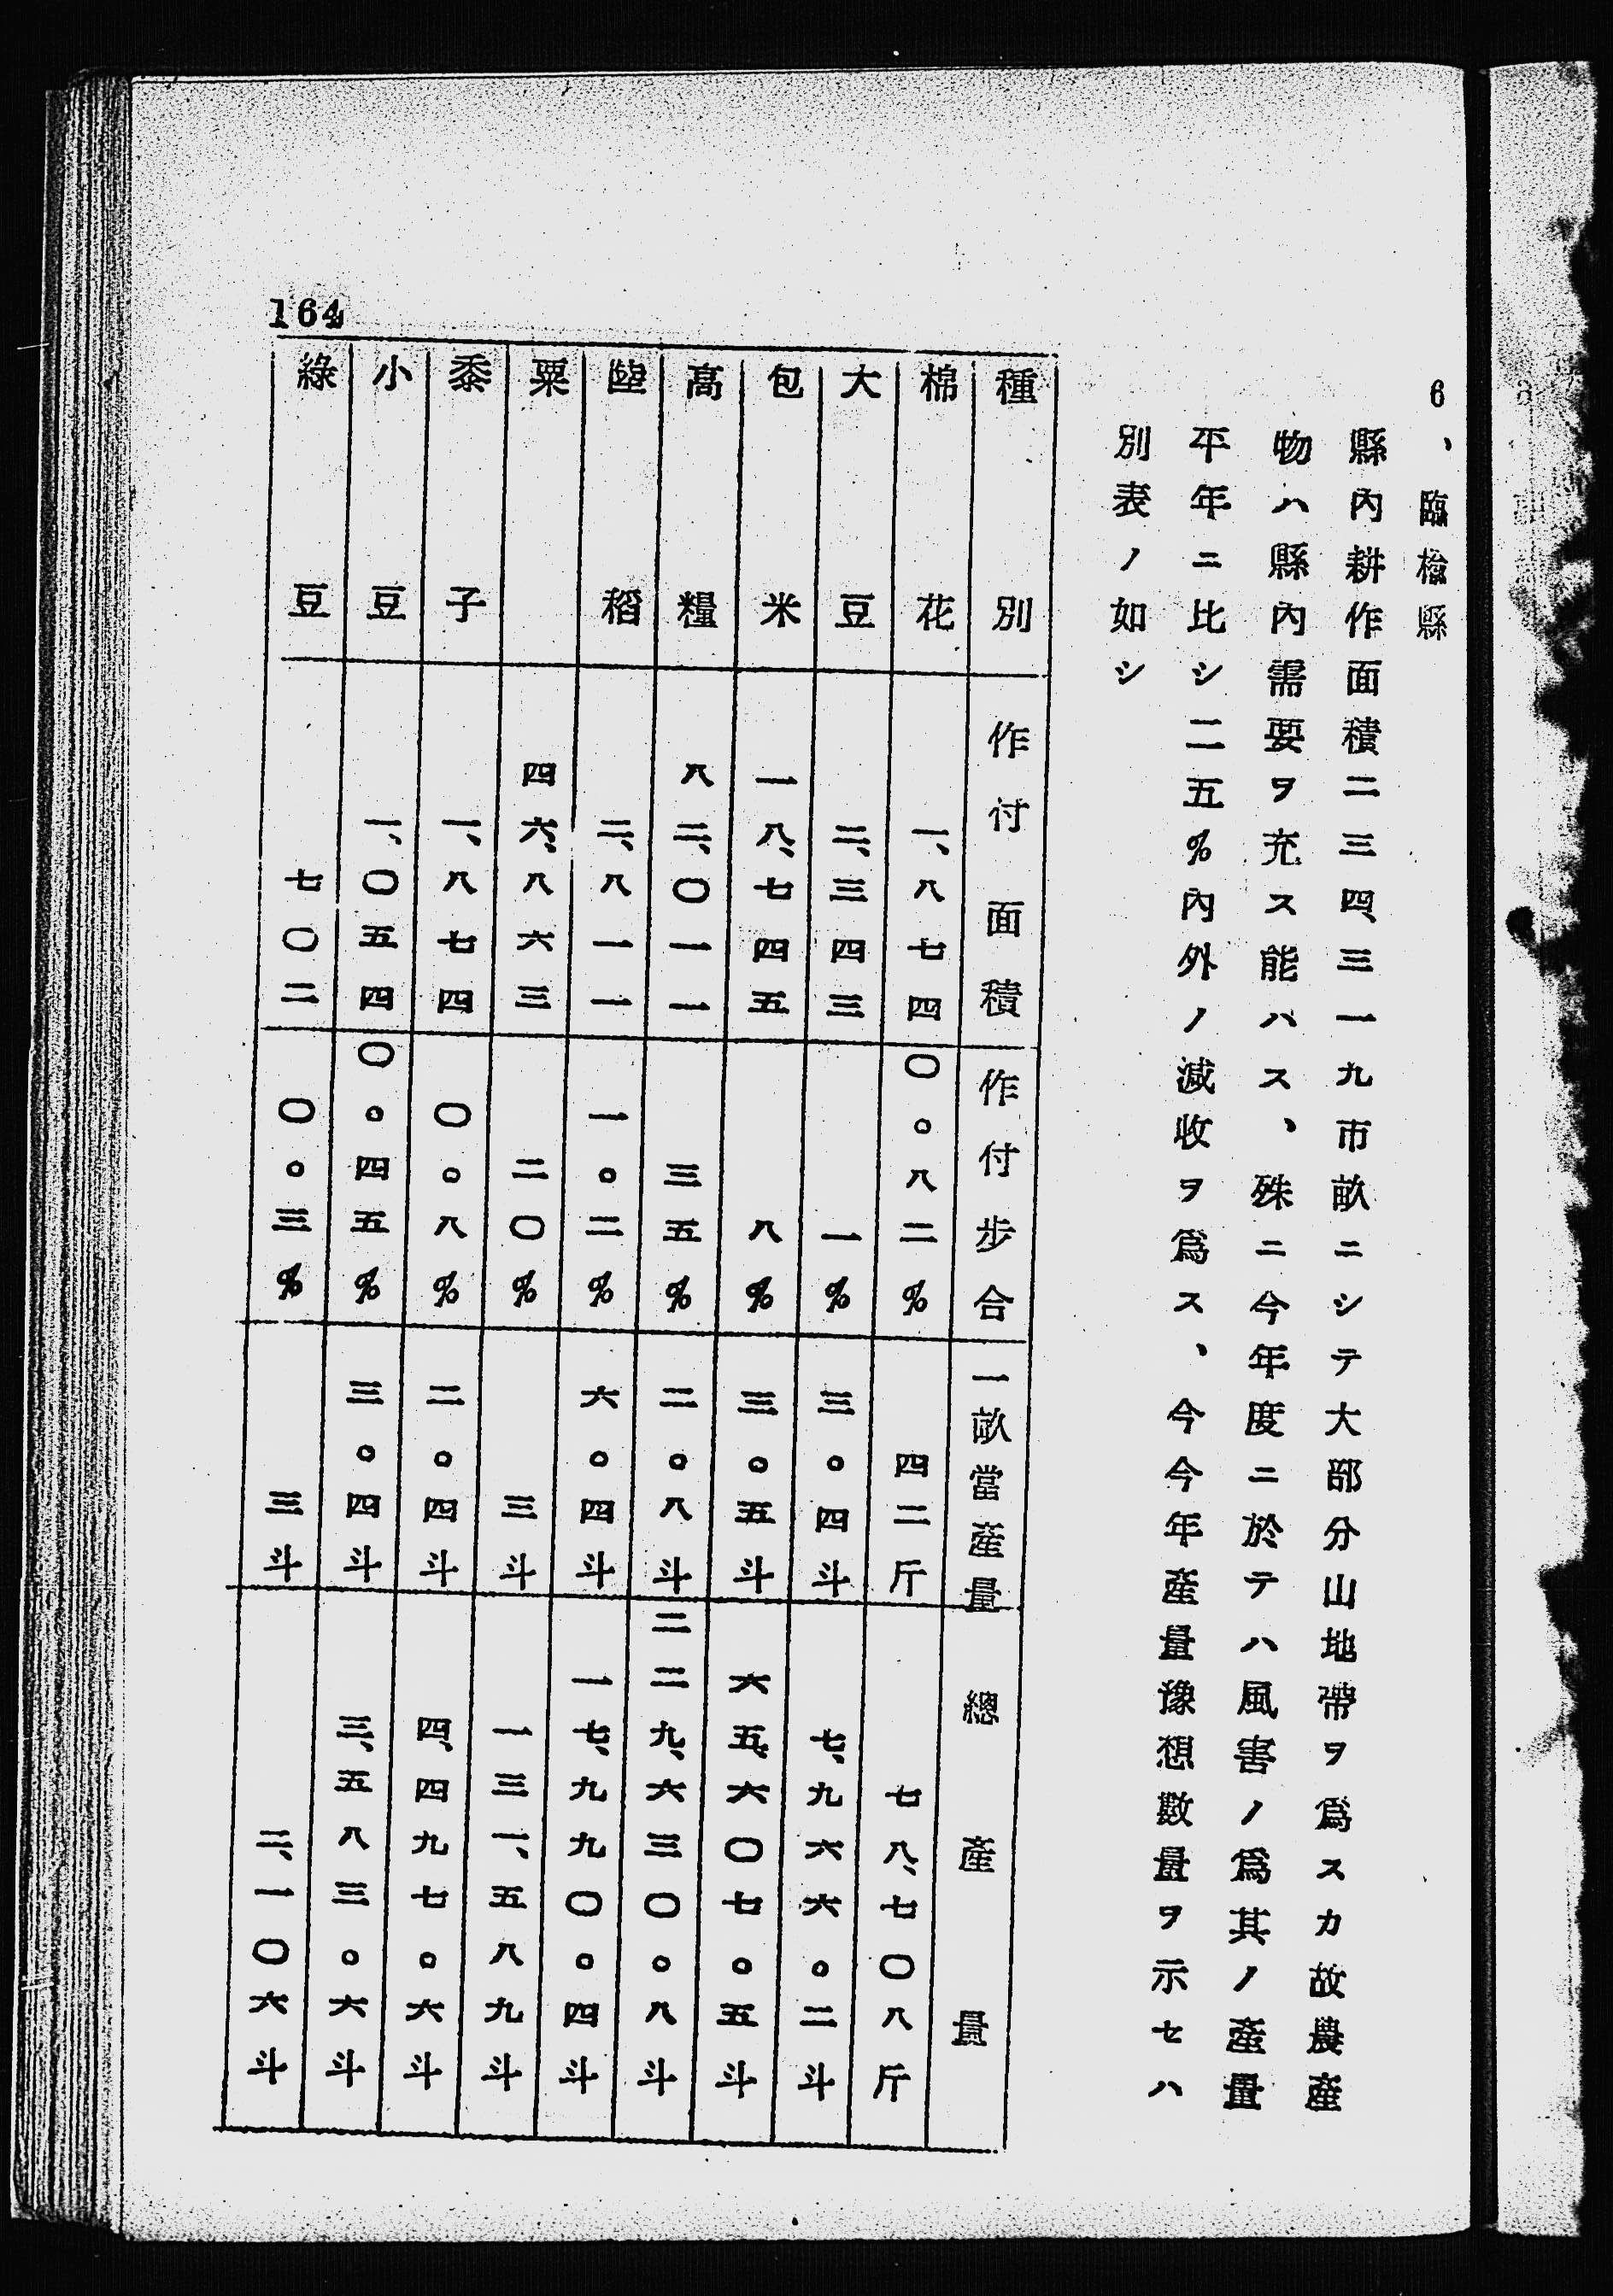 6、臨楡縣
縣內耕作面積二三四、三一九市畝ニシテ大部分山地帶ヲ爲スカ故農產
物ハ縣內需要ヲ充ス能ハス、殊ニ今年度ニ於テハ風害ノ爲其ノ產量
平年ニ比シ二五%內外ノ減收ヲ爲ス、今今年產量豫想數量ヲ示セハ
別表ノ如シ
種別 作付面積 作付步合 一畝當產量 總產量
棉花 一、八七四 〇。八二% 四二斤 七八、七〇八斤
大豆 二、三四三 一% 三。四斗 七、九六六。二斗
包米 一八、七四五 八% 三。五斗 六五、六〇七。五斗
高糧 八二、〇一一 三五% 二。八斗 二二九、六三〇。八斗
陸稻 二、八一一 一。二% 六。四斗 一七、九九〇。四斗
粟 四六、八六三 二〇% 三斗 一三一、五八九斗
黍子 一、八七四 〇。八% 二。四斗 四、四九七。六斗
小豆 一、〇五四 〇。四五% 三。四斗 三、五八三。六斗
綠豆 七〇二 〇。三% 三斗 二、一〇六斗
164